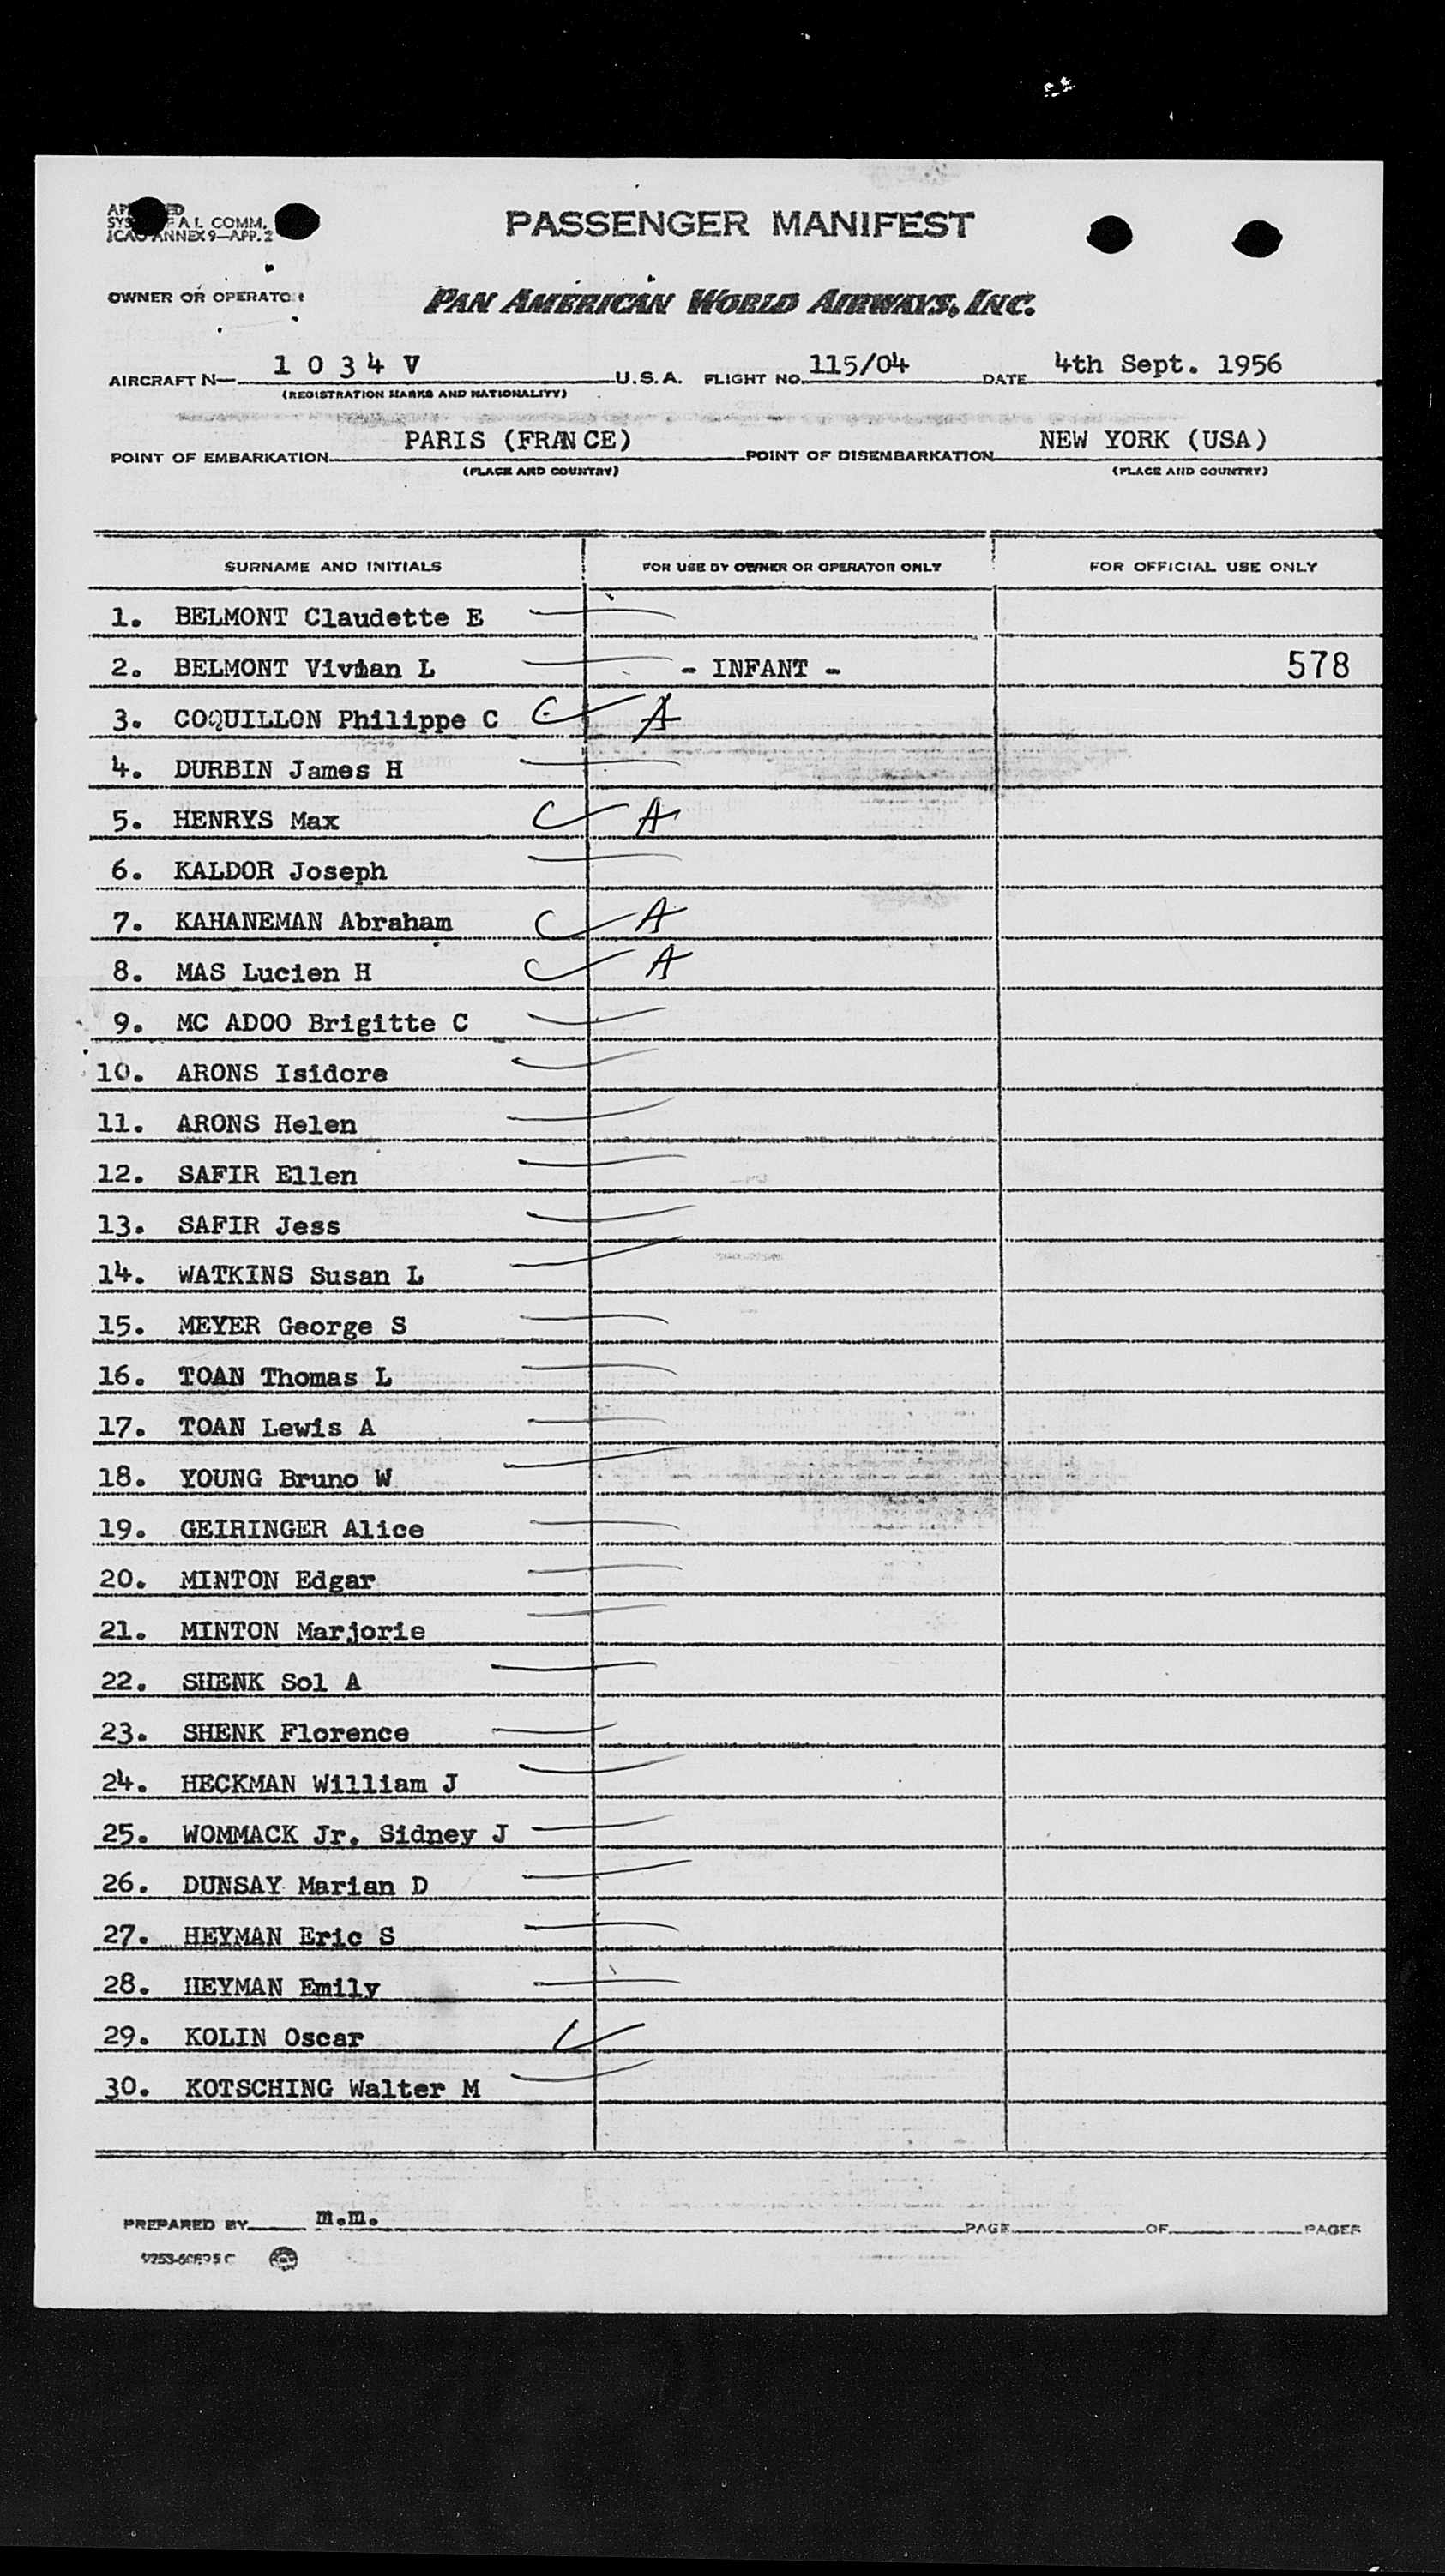 PASSENGER MANIFEST
SYS A.I. COMM.
ICAO ANNEX 9—APP. 2
OWNER OR OPERATOR
PAN AMERICAN WORLD AIRWAYS, INC.
AIRCRAFT N— 1 0 3 4 V U.S.A. FLIGHT NO. 115/04 DATE 4th Sept. 1956
(REGISTRATION MARKS AND NATIONALITY)
POINT OF EMBARKATION PARIS (FRANCE) POINT OF DISEMBARKATION NEW YORK (USA)
(PLACE AND COUNTRY) (PLACE AND COUNTRY)
SURNAME AND INITIALS FOR USE BY OWNER OR OPERATOR ONLY FOR OFFICIAL USE ONLY
1. BELMONT Claudette E
2. BELMONT Vivian L - INFANT - 578
3. COQUILLON Philippe C C A
4. DURBIN James H
5. HENRYS Max C A
6. KALDOR Joseph
7. KAHANEMAN Abraham C A
8. MAS Lucien H C A
9. MC ADOO Brigitte C
10. ARONS Isidore
11. ARONS Helen
12. SAFIR Ellen
13. SAFIR Jess
14. WATKINS Susan L
15. MEYER George S
16. TOAN Thomas L
17. TOAN Lewis A
18. YOUNG Bruno W
19. GEIRINGER Alice
20. MINTON Edgar
21. MINTON Marjorie
22. SHENK Sol A
23. SHENK Florence
24. HECKMAN William J
25. WOMMACK Jr. Sidney J
26. DUNSAY Marian D
27. HEYMAN Eric S
28. HEYMAN Emily
29. KOLIN Oscar
30. KOTSCHING Walter M
PREPARED BY m.m. PAGE OF PAGES